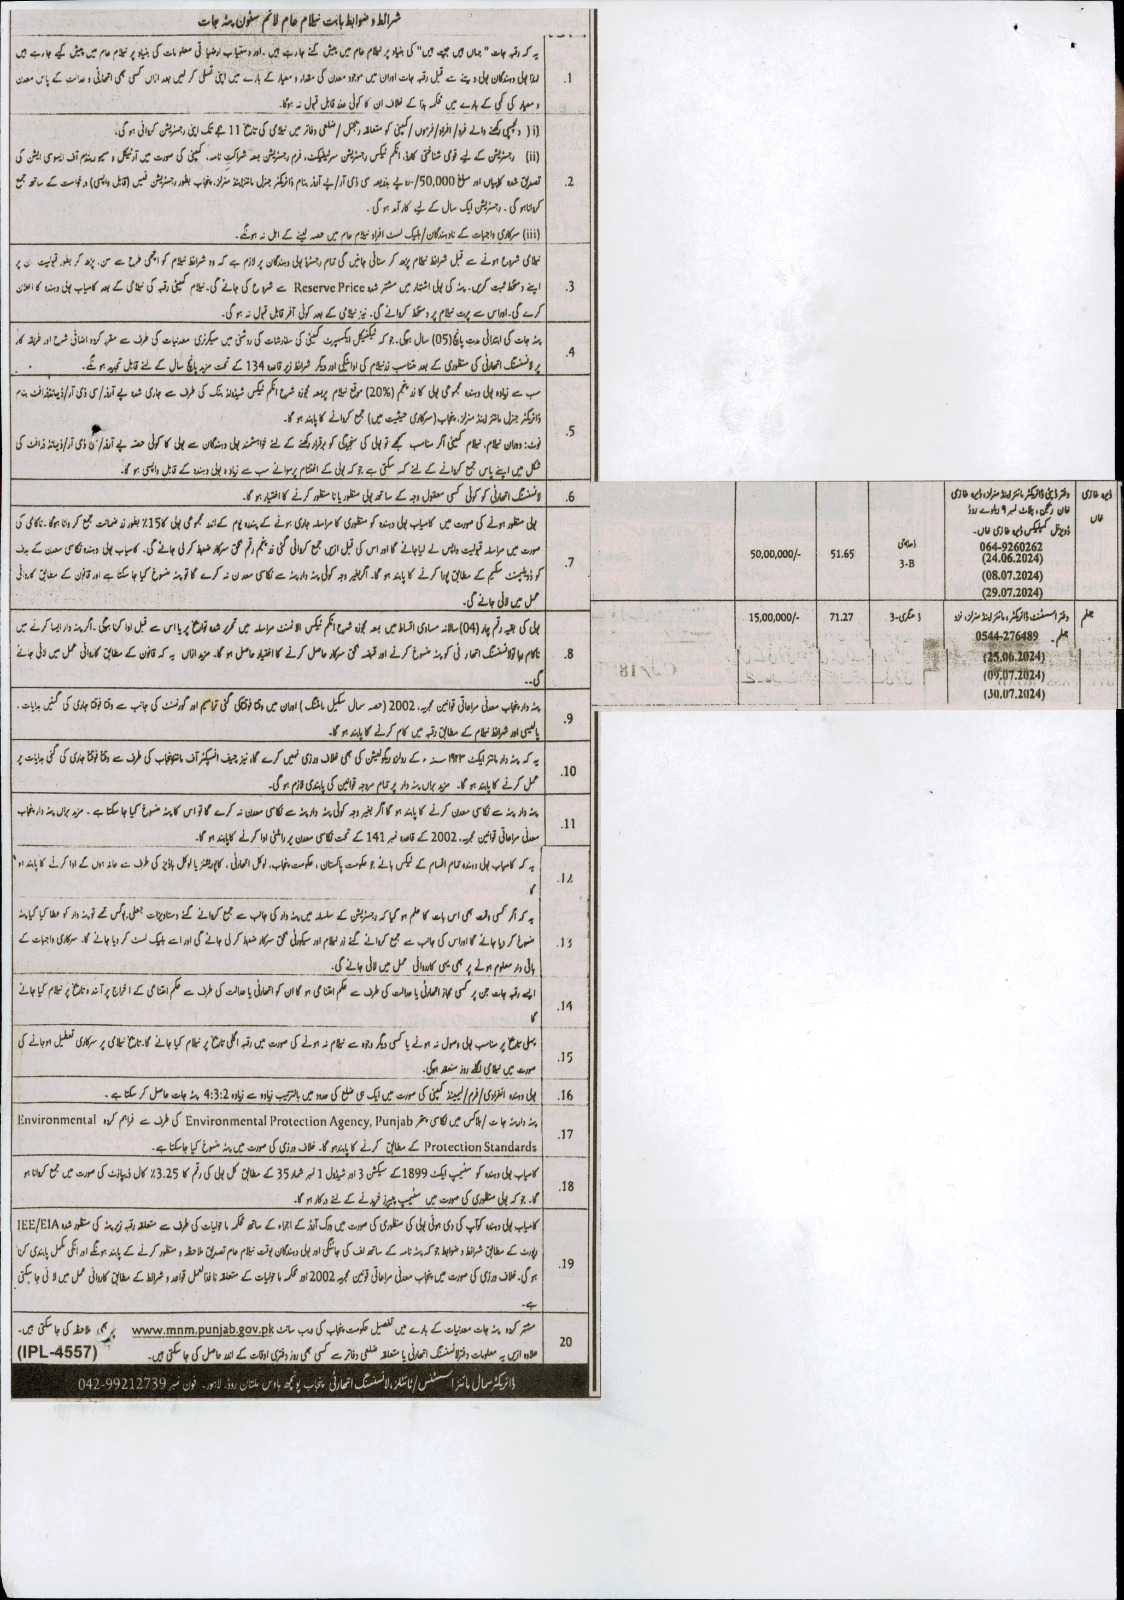 شرائط و ضوابط بابت نیلام عام لائم سٹون پٹہ جات
1. یہ کہ رقبہ جات "جہاں ہیں جیسے ہیں" کی بنیاد پر نیلام عام میں پیش کئے جا رہے ہیں۔ اور دستیاب ارضیاتی معلومات کی بنیاد پر نیلام عام میں پیش کیے جا رہے ہیں
لہٰذا بولی دہندگان بولی دینے سے قبل رقبہ جات اور ان میں موجود معدن کی مقدار و معیار کے بارے میں اپنی تسلی کر لیں بعد ازاں کسی بھی اتھارٹی و عدالت کے پاس معدن
و معیار کی کمی کے بارے میں محکمہ ہذا کے خلاف ان کا کوئی عذر قابل قبول نہ ہوگا۔
2. (i) دلچسپی رکھنے والے فرد/افراد/فرموں/کمپنی کو متعلقہ ریجنل/ضلعی دفاتر میں نیلامی کی تاریخ 11 بجے تک اپنی رجسٹریشن کروانی ہوگی۔
(ii) رجسٹریشن کے لیے قومی شناختی کارڈ، انکم ٹیکس رجسٹریشن سرٹیفکیٹ، فرم رجسٹریشن بمعہ شراکت نامہ، کمپنی کی صورت میں آرٹیکل و میمورینڈم آف ایسوسی ایشن کی
تصدیق شدہ کاپیاں اور مبلغ 50,000/- روپے بذریعہ سی ڈی آر/پے آرڈر بنام ڈائریکٹر جنرل مائنز اینڈ منرلز، پنجاب بطور رجسٹریشن فیس (ناقابل واپسی) درخواست کے ساتھ جمع
کروانا ہوگی۔ رجسٹریشن ایک سال کے لیے کارآمد ہوگی۔
(iii) سرکاری واجبات کے نادہندگان/بلیک لسٹ افراد نیلام عام میں حصہ لینے کے اہل نہ ہونگے۔
3. نیلامی شروع ہونے سے قبل شرائط نیلام پڑھ کر سنائی جائیں گی تمام رجسٹرڈ بولی دہندگان پر لازم ہے کہ وہ شرائط نیلام کو اچھی طرح سے سن، پڑھ کر بطور قبولیت ان پر
اپنے دستخط ثبت کریں۔ پٹہ کی بولی اشتہار میں مشتہر شدہ Reserve Price سے شروع کی جائے گی۔ نیلام کمیٹی رقبہ کی نیلامی کے بعد کامیاب بولی دہندہ کا اعلان
کرے گی۔ اور اس سے پرت نیلام پر دستخط کروائے گی۔ نیز نیلامی کے بعد کوئی آفر قابل قبول نہ ہوگی۔
4. پٹہ جات کی ابتدائی مدت پانچ (05) سال ہوگی۔ جو کہ ٹیکنیکل ایکسپرٹ کمیٹی کی سفارشات کی روشنی میں سیکرٹری معدنیات کی طرف سے مقرر کردہ اضافی شرح اور طریقہ کار
پر لائسنسنگ اتھارٹی کی منظوری کے بعد متناسب زر نیلام کی ادائیگی اور دیگر شرائط زیر قاعدہ 134 کے تحت مزید پانچ سال کے لئے قابل تجدید ہونگے۔
5. سب سے زیادہ بولی دہندہ مجموعی بولی کا زر پنجم (20%) موقع نیلام پر بمعہ مجوزہ شرح انکم ٹیکس شیڈولڈ بنک کی طرف سے جاری شدہ پے آرڈر/سی ڈی آر/ڈیمانڈ ڈرافٹ بنام
ڈائریکٹر جنرل مائنز اینڈ منرلز، پنجاب (سرکاری حیثیت میں) جمع کروانے کا پابند ہو گا۔
نوٹ: دوران نیلام، نیلام کمیٹی اگر مناسب سمجھے تو بولی کی سنجیدگی کو برقرار رکھنے کے لئے خواہشمند بولی دہندگان سے بولی کا کوئی حصہ پے آرڈر/سی ڈی آر/ڈیمانڈ ڈرافٹ کی
شکل میں اپنے پاس جمع کروانے کے لئے کہہ سکتی ہے جو کہ بولی کے اختتام پر سوائے سب سے زیادہ بولی دہندہ کے قابل واپسی ہو گا۔
6. لائسنسنگ اتھارٹی کو کوئی کسی معقول وجہ کے ساتھ بولی منظور یا نا منظور کرنے کا اختیار ہو گا۔
7. بولی منظور ہونے کی صورت میں کامیاب بولی دہندہ کو منظوری کا مراسلہ جاری ہونے کے پندرہ یوم کے اندر مجموعی بولی کا 15٪ بطور زر ضمانت جمع کروانا ہوگا۔ ناکامی کی
صورت میں مراسلہ قبولیت واپس لے لیا جائے گا اور اس کی قبل ازیں جمع کروائی گئی زر پنجم رقم بحق سرکار ضبط کر لی جائے گی۔ کامیاب بولی دہندہ نکاسی معدن کے ہدف
کو ڈویلپمنٹ سکیم کے مطابق پورا کرنے کا پابند ہو گا۔ اگر بغیر وجہ کوئی پٹہ دار پٹہ سے نکاسی معدن نہ کرے گا تو پٹہ منسوخ کیا جا سکتا ہے اور قانون کے مطابق کاروائی
عمل میں لائی جائے گی۔
8. بولی کی بقیہ رقم چار (04) سالانہ مساوی اقساط میں بمعہ مجوزہ شرح انکم ٹیکس الاٹمنٹ مراسلہ میں تحریر شدہ تواریخ پر یا اس سے قبل ادا کرنا ہوگی۔ اگر پٹہ دار ایسا کرنے میں
ناکام رہا تو لائسنسنگ اتھارٹی کو پٹہ منسوخ کرنے اور قبضہ بحق سرکار حاصل کرنے کا اختیار حاصل ہو گا۔ مزید ازاں یہ کہ قانون کے مطابق کاروائی عمل میں لائی جائے
گی۔
9. پٹہ دار پنجاب معدنی مراعاتی قوانین مجریہ، 2002 (حصہ سمال سکیل مائننگ) اور ان میں وقتا فوقتا کی گئی ترامیم اور گورنمنٹ کی جانب سے وقتا فوقتا جاری کی گئیں ہدایات،
پالیسی اور شرائط نیلام کے مطابق رقبہ میں کام کرنے کا پابند ہو گا۔
10. یہ کہ پٹہ دار مائنز ایکٹ ۱۹۲۳ سنہ ء کے رولز و ریگولیشن کی بھی خلاف ورزی نہیں کرے گا، نیز چیف انسپکٹر آف مائنز پنجاب کی طرف سے وقتا فوقتا جاری کی گئی ہدایات پر
عمل کرنے کا پابند ہو گا۔ مزید براں پٹہ دار پر تمام مروجہ قوانین کی پابندی لازم ہو گی۔
11. پٹہ دار پٹہ سے نکاسی معدن کرنے کا پابند ہو گا اگر بغیر وجہ کوئی پٹہ دار پٹہ سے نکاسی معدن نہ کرے گا تو اس کا پٹہ منسوخ کیا جا سکتا ہے۔ مزید براں پٹہ دار پنجاب
معدنی مراعاتی قوانین مجریہ، 2002 کے قاعدہ نمبر 141 کے تحت نکاسی معدن پر رائلٹی ادا کرنے کا پابند ہو گا۔
12. یہ کہ کامیاب بولی دہندہ تمام اقسام کے ٹیکس ہائے جو حکومت پاکستان، حکومت پنجاب، لوکل اتھارٹی، کارپوریشنز یا لوکل باڈیز کی طرف سے عائد ہوں گے ادا کرنے کا پابند ہو
گا
13. یہ کہ اگر کسی وقت بھی اس بات کا علم ہو گیا کہ رجسٹریشن کے سلسلہ میں پٹہ دار کی جانب سے جمع کروائے گئے دستاویزات جعلی/بوگس تھے تو پٹہ دار کو عطا کیا گیا پٹہ
منسوخ کر دیا جائے گا اور اس کی جانب سے جمع کروائے گئے زر نیلام اور سیکورٹی بحق سرکار ضبط کر لی جائے گی اور اسے بلیک لسٹ کر دیا جائے گا۔ سرکاری واجبات کے
باقی دار معلوم ہونے پر بھی یہی کارروائی عمل میں لائی جائے گی۔
14. ایسے رقبہ جات جن پر کسی مجاز اتھارٹی یا عدالت کی طرف سے حکم امتناعی ہو گا ان کو اتھارٹی یا عدالت کی طرف سے حکم امتناعی کے اخراج پر آئندہ تاریخ پر نیلام کیا جائے
گا
15. پہلی تاریخ پر مناسب بولی وصول نہ ہونے یا کسی دیگر وجوہ سے نیلام نہ ہونے کی صورت میں رقبہ اگلی تاریخ پر نیلام کیا جائے گا۔ تاریخ نیلامی پر سرکاری تعطیل ہو جانے کی
صورت میں نیلامی اگلے روز منعقد ہوگی۔
16. بولی دہندہ انفرادی/فرم/لمیٹیڈ کمپنی کی صورت میں ایک ہی ضلع کی حدود میں بالترتیب زیادہ سے زیادہ 4:3:2 پٹہ جات حاصل کر سکتا ہے۔
17. پٹہ دار پٹہ جات/بلاکس میں نکاسی پتھر Environmental Protection Agency, Punjab کی طرف سے فراہم کردہ Environmental
Protection Standards کے مطابق کرنے کا پابند ہو گا۔ خلاف ورزی کی صورت میں پٹہ منسوخ کیا جا سکتا ہے۔
18. کامیاب بولی دہندہ کو سٹیمپ ایکٹ 1899 کے سیکشن 3 اور شیڈول 1 نمبر شمار 35 کے مطابق کل بولی کی رقم کا 3.25٪ کال ڈیپازٹ کی صورت میں جمع کروانا ہو
گا۔ جو کہ بولی منظوری کی صورت میں سٹیمپ پیپرز خریدنے کے لئے درکار ہو گا۔
19. کامیاب بولی دہندہ کو آپ کی دی ہوئی بولی کی منظوری کی صورت میں ورک آرڈر کے اجراء کے ساتھ محکمہ ماحولیات کی طرف سے متعلقہ رقبہ زیر پٹہ کی منظور شدہ IEE/EIA
رپورٹ کے مطابق شرائط و ضوابط جو کہ پٹہ نامہ کے ساتھ لف کی جائنگی اور بولی دہندگان بوقت نیلام عام تصدیق ملاحظہ و منظور کرنے کے پابند ہونگے اور انکی مکمل پابندی کرنا
ہو گی۔ خلاف ورزی کی صورت میں پنجاب معدنی مراعاتی قوانین مجریہ 2002 اور محکمہ ماحولیات کے متعلقہ نافذ العمل قواعد و شرائط کے مطابق کاروائی عمل میں لائی جا سکتی
ہے۔
20 مشتہر کردہ پٹہ جات معدنیات کے بارے میں تفصیل حکومت پنجاب کی ویب سائٹ www.mnm.punjab.gov.pk پر بھی ملاحظہ کی جا سکتی ہیں۔
علاوہ ازیں یہ معلومات دفتر لائسنسنگ اتھارٹی یا متعلقہ ضلعی دفاتر سے کسی بھی روز دفتری اوقات کے اندر حاصل کی جا سکتی ہیں۔ (IPL-4557)
ڈائریکٹر سمال مائنز اسسٹنس/ٹائٹلز، لائسنسنگ اتھارٹی پنجاب پونچھ ہاوس ملتان روڈ، لاہور۔ فون نمبر 042-99212739
ڈیرہ غازی خاں
دفتر ڈپٹی ڈائریکٹر مائنز اینڈ منرلز ڈیرہ غازی
خان ریجن، پلاٹ نمبر ۹ ریلوے روڈ
ڈویژنل کمپلیکس ڈیرہ غازی خاں۔
064-9260262
(24.06.2024)
(08.07.2024)
(29.07.2024)
3-B
51.65
50,00,000/-
جہلم
دفتر اسسٹنٹ ڈائریکٹر، مائنز اینڈ منرلز، نزد
جہلم۔
0544-276489
(25.06.2024)
(09.07.2024)
(30.07.2024)
71.27
15,00,000/-